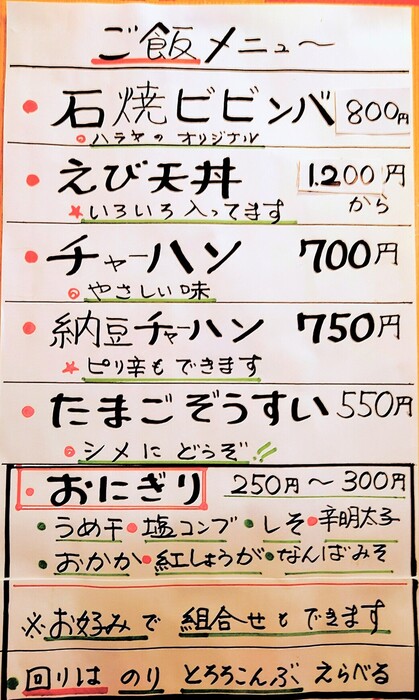 ご飯メニュ～
石焼ビビンバ 800円
ハラキのオリジナル
えび天丼 1.200円
いろいろ入ってます から
チャーハン 700円
やさしい味
納豆チャーハン 750円
ピリ辛もできます
たまごぞうすい 550円
シメにどうぞ!!
おにぎり 250円～300円
うめ干 塩コンブ しそ 辛明太子
おかか 紅しょうが なんばみそ
※お好みで組合せもできます
回りは のり とろろこんぶ えらべる